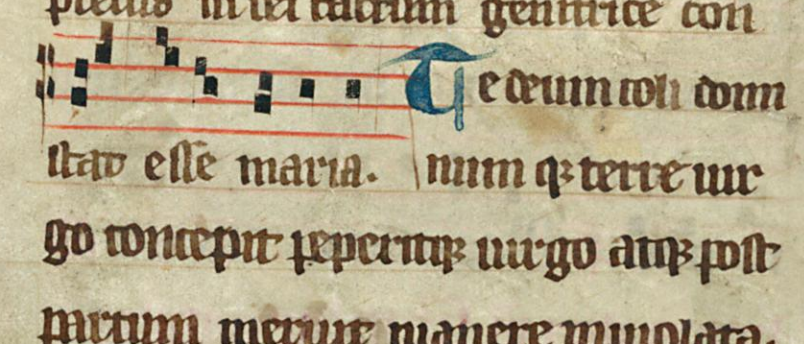 genitrice con
Te deum celi domi
stat esse maria. num qꝫ terre uir
go concepit peperitqꝫ uirgo atqꝫ post
partum meruit manere inuiolata.